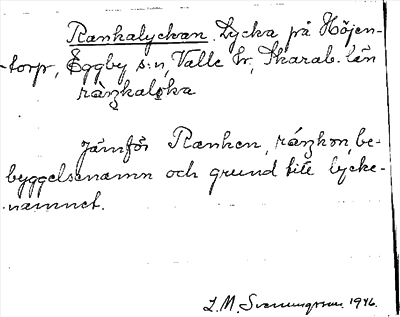 Rankalyckan. Lycka på Höjen-
torp, Eggby s:n, Valle hr, Skarab. län
ràŋkaløka
Jämför Ranken, ráŋkon, be-
byggelsenamn och grund till lycke-
namnet.
L. M. Svenungsson 1946.